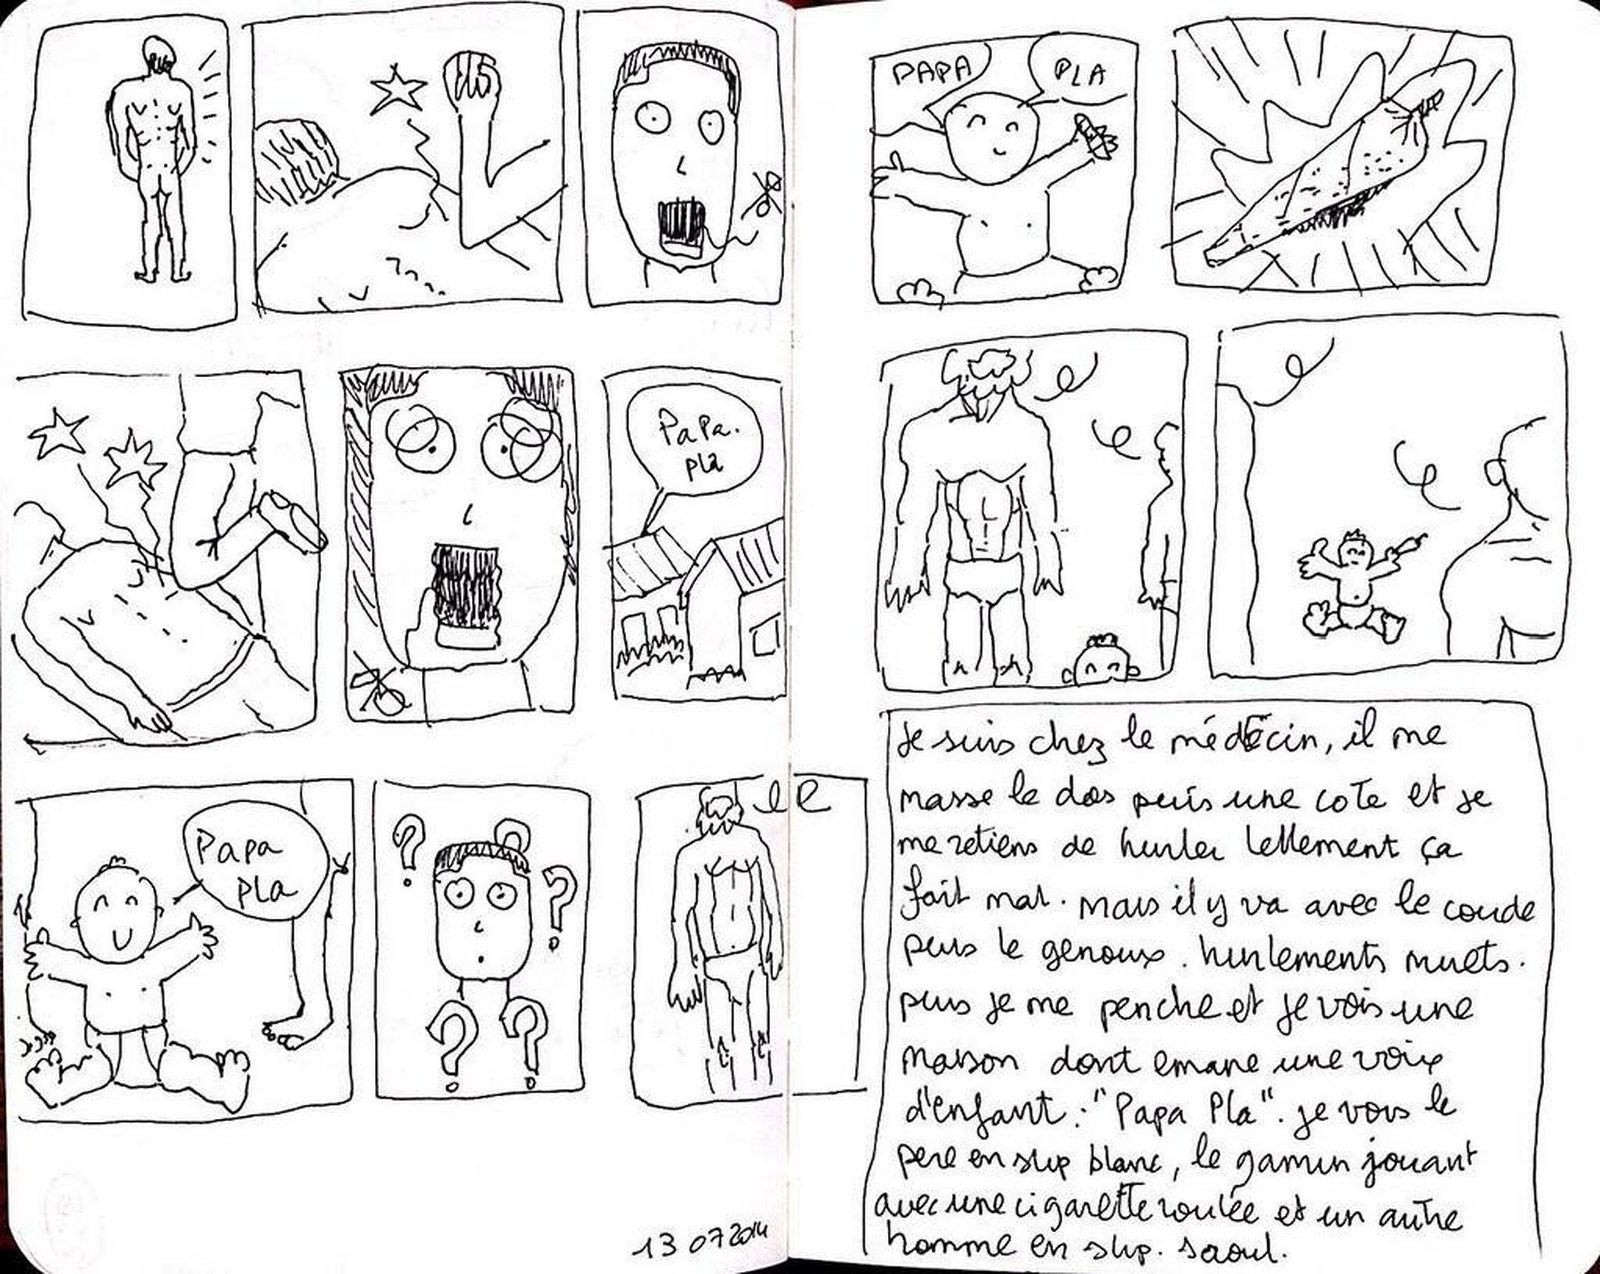 Papa.
pla
Papa
pla
?
?
?
?
?
13 07 2014
PAPA
PLA
Je suis chez le médecin, il me
masse le dos puis une cote et je
me retiens de hurler tellement ça
fait mal. Mais il y va avec le coude
puis le genoux. hurlements muets.
puis je me penche et je vois une
maison dont emane une voix
d'enfant : "Papa Pla". je vois le
pere en slip blanc, le gamin jouant
avec une cigarette roulée et un autre
homme en slip. saoul.